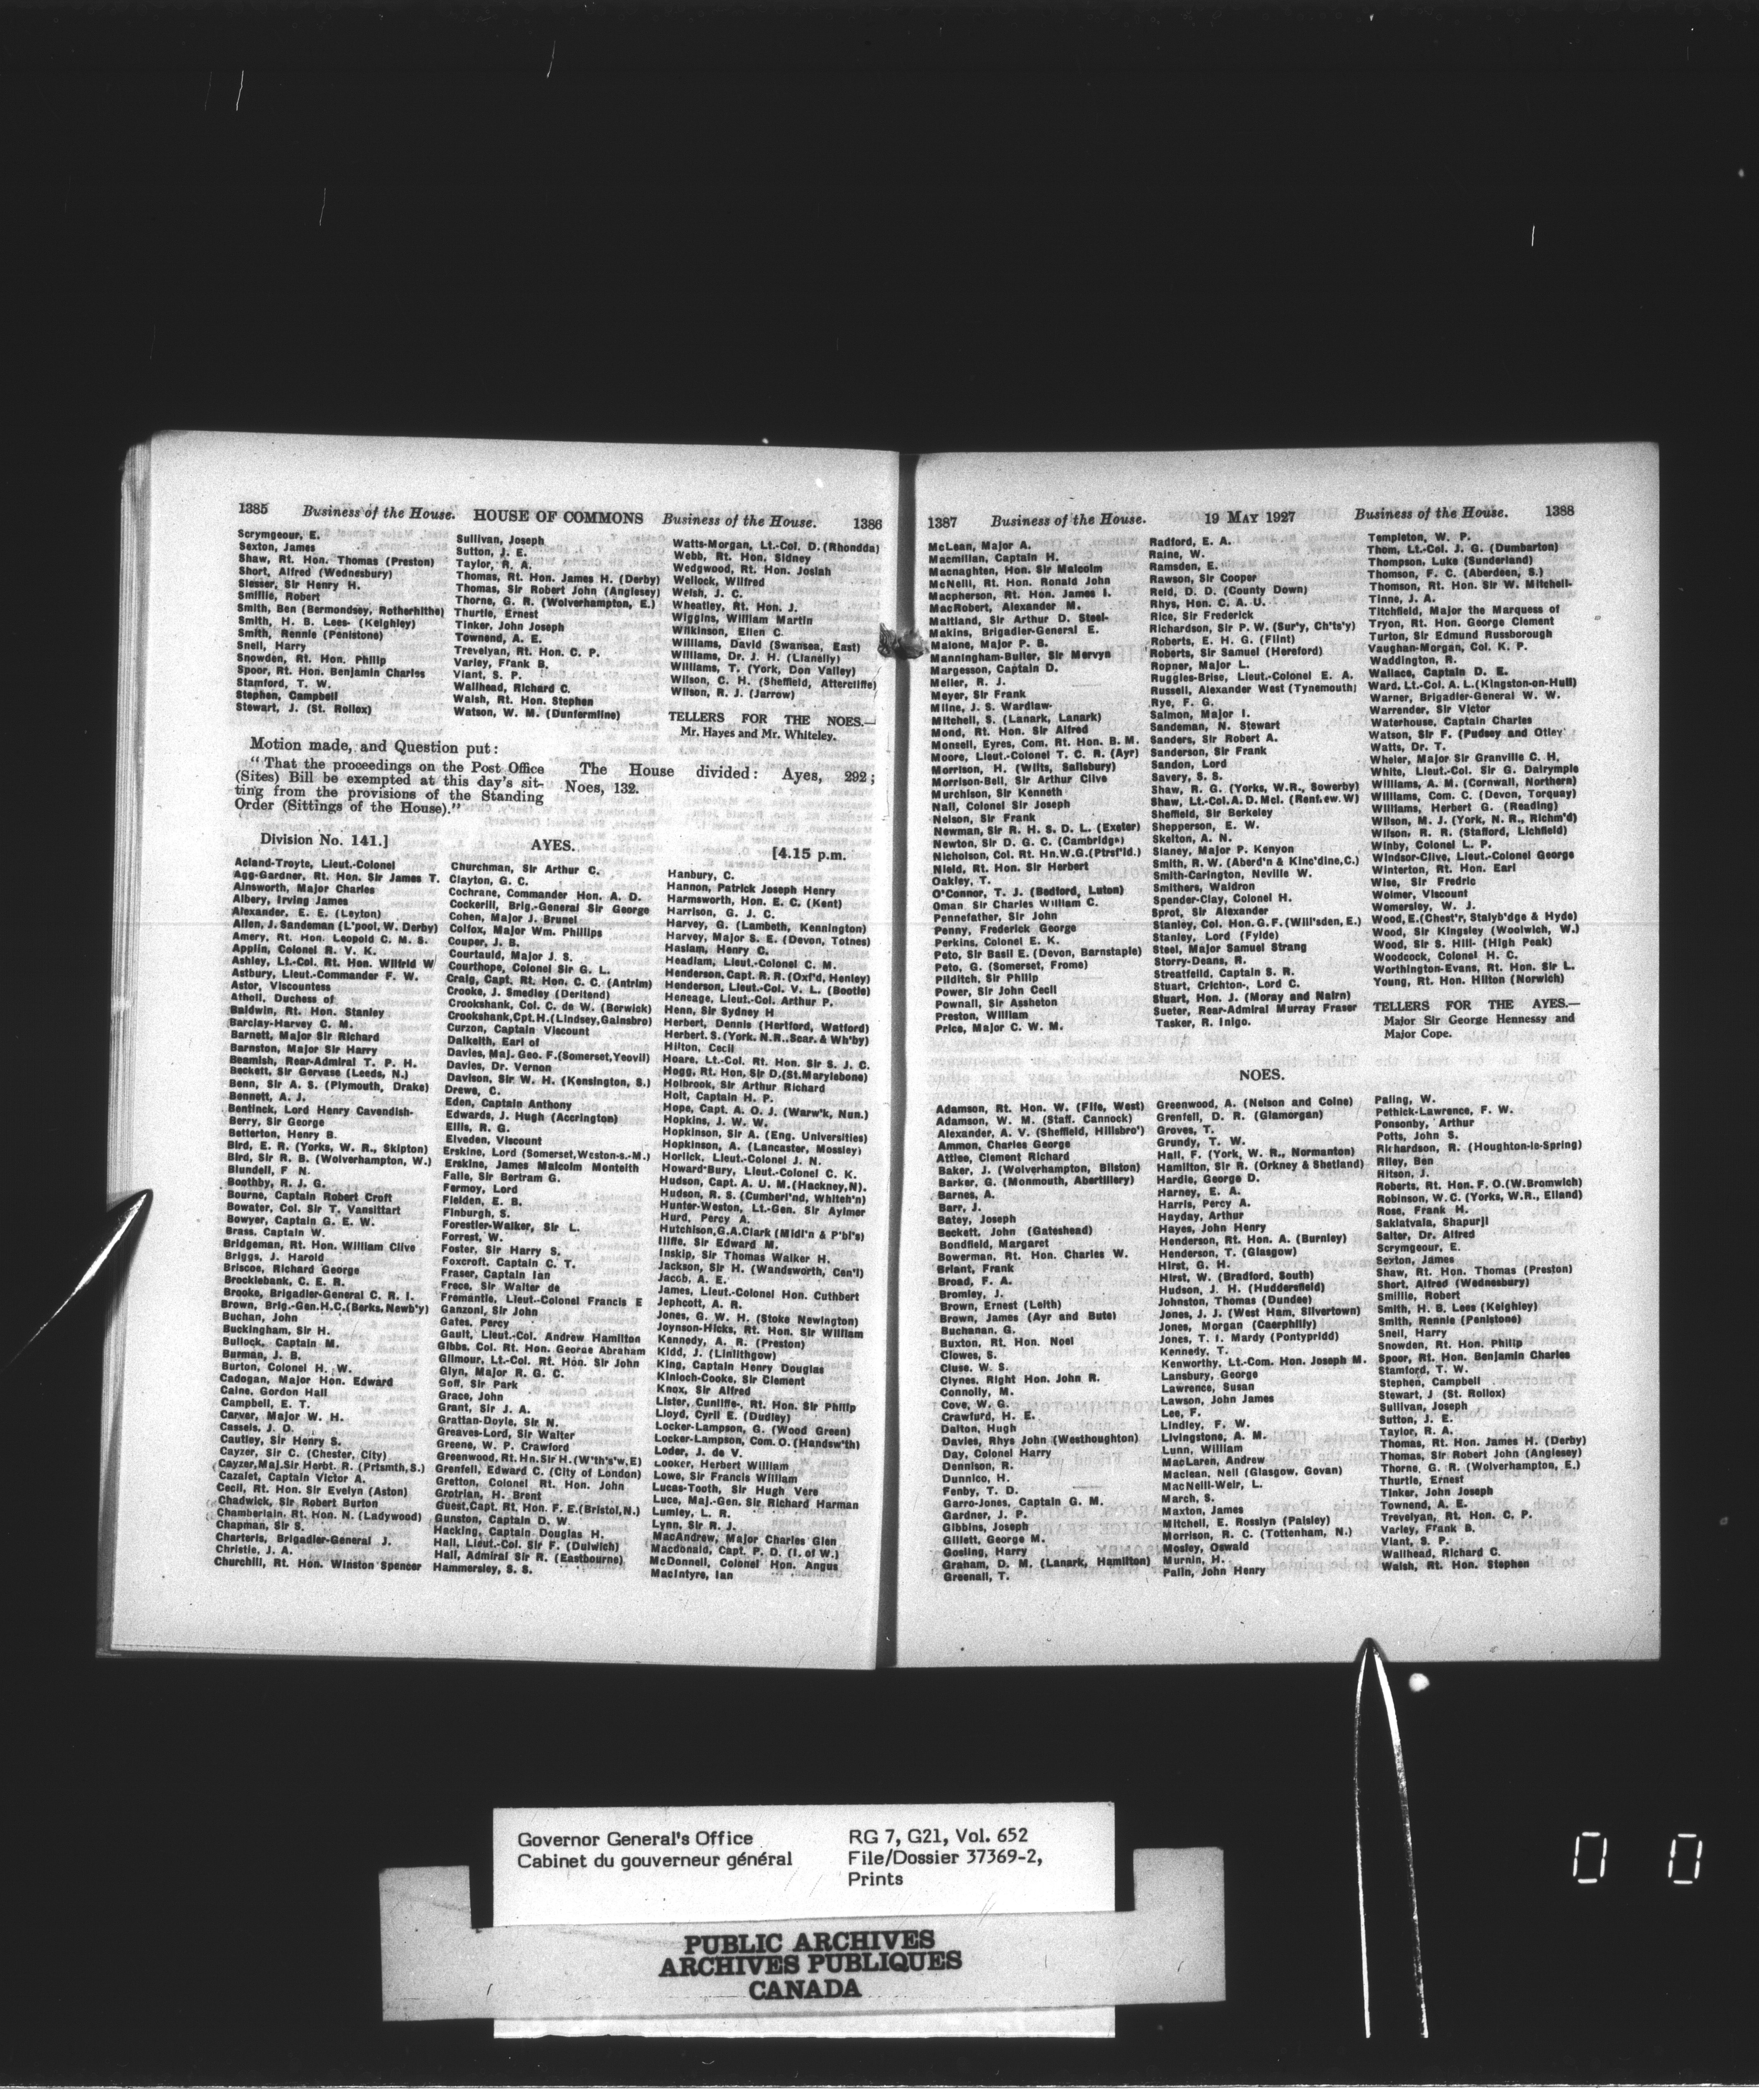 1385 Business of the House. HOUSE OF COMMONS Business of the House. 1386
Scrymgeour, E.
Sexton, James
Shaw, Rt. Hon. Thomas (Preston)
Short, Alfred (Wednesbury)
Slesser, Sir Henry H.
Smillie, Robert
Smith, Ben (Bermondsey, Rotherhithe)
Smith, H. B. Lees- (Keighley)
Smith, Rennie (Penistone)
Snell, Harry
Snowden, Rt. Hon. Philip
Spoor, Rt. Hon. Benjamin Charles
Stamford, T. W.
Stephen, Campbell
Stewart, J. (St. Rollox)
Sullivan, Joseph
Sutton, J. E.
Taylor, R. A.
Thomas, Rt. Hon. James H. (Derby)
Thomas, Sir Robert John (Anglesey)
Thorne, G. R. (Wolverhampton, E.)
Thurtle, Ernest
Tinker, John Joseph
Townend, A. E.
Trevelyan, Rt. Hon. C. P.
Varley, Frank B.
Viant, S. P.
Wallhead, Richard C.
Walsh, Rt. Hon. Stephen
Watson, W. M. (Dunfermline)
Watts-Morgan, Lt.-Col. D. (Rhondda)
Webb, Rt. Hon. Sidney
Wedgwood, Rt. Hon. Josiah
Wellock, Wilfred
Welsh, J. C.
Wheatley, Rt. Hon. J.
Wiggins, William Martin
Wilkinson, Ellen C.
Williams, David (Swansea, East)
Williams, Dr. J. H. (Llanelly)
Williams, T. (York, Don Valley)
Wilson, C. H. (Sheffield, Attercliffe)
Wilson, R. J. (Jarrow)
TELLERS FOR THE NOES.—
Mr. Hayes and Mr. Whiteley.
Motion made, and Question put:
"That the proceedings on the Post Office
(Sites) Bill be exempted at this day's sit-
ting from the provisions of the Standing
Order (Sittings of the House)."
The House divided: Ayes, 292;
Noes, 132.
Division No. 141.]
AYES.
[4.15 p.m.
Acland-Troyte, Lieut.-Colonel
Agg-Gardner, Rt. Hon. Sir James T.
Ainsworth, Major Charles
Albery, Irving James
Alexander, E. E. (Leyton)
Allen, J. Sandeman (L'pool, W. Derby)
Amery, Rt. Hon. Leopold C. M. S.
Applin, Colonel R. V. K.
Ashley, Lt.-Col. Rt. Hon. Wilfrid W
Astbury, Lieut.-Commander F. W.
Astor, Viscountess
Atholl, Duchess of
Baldwin, Rt. Hon. Stanley
Barclay-Harvey C. M.
Barnett, Major Sir Richard
Barnston, Major Sir Harry
Beamish, Rear-Admiral T. P. H.
Beckett, Sir Gervase (Leeds, N.)
Benn, Sir A. S. (Plymouth, Drake)
Bennett, A. J.
Bentinck, Lord Henry Cavendish-
Berry, Sir George
Betterton, Henry B.
Bird, E. R. (Yorks, W. R., Skipton)
Bird, Sir R. B. (Wolverhampton, W.)
Blundell, F N.
Boothby, R. J. G.
Bourne, Captain Robert Croft
Bowater, Col. Sir T. Vansittart
Bowyer, Captain G. E. W.
Brass, Captain W.
Bridgeman, Rt. Hon. William Clive
Briggs, J. Harold
Briscoe, Richard George
Brocklebank, C. E. R.
Brooke, Brigadier-General C. R. I.
Brown, Brig.-Gen.H.C.(Berks,Newb'y)
Buchan, John
Buckingham, Sir H.
Bullock, Captain M.
Burman, J. B.
Burton, Colonel H. W.
Cadogan, Major Hon. Edward
Caine, Gordon Hall
Campbell, E. T.
Carver, Major W. H.
Cassels, J. D.
Cautley, Sir Henry S.
Cayzer, Sir C. (Chester, City)
Cayzer,Maj.Sir Herbt. R. (Prtsmth,S.)
Cazalet, Captain Victor A.
Cecil, Rt. Hon. Sir Evelyn (Aston)
Chadwick, Sir Robert Burton
Chamberlain, Rt. Hon. N. (Ladywood)
Chapman, Sir S.
Charteris, Brigadier-General J.
Christie, J. A.
Churchill, Rt. Hon. Winston Spencer
Churchman, Sir Arthur C.
Clayton, G. C.
Cochrane, Commander Hon. A. D.
Cockerill, Brig.-General Sir George
Cohen, Major J. Brunel
Colfox, Major Wm. Phillips
Couper, J. B.
Courtauld, Major J. S.
Courthope, Colonel Sir G. L.
Craig, Capt. Rt. Hon. C. C. (Antrim)
Crooke, J. Smedley (Deritend)
Crookshank, Col. C. de W. (Berwick)
Crookshank,Cpt.H.(Lindsey,Gainsbro)
Curzon, Captain Viscount
Dalkeith, Earl of
Davies, Maj. Geo. F.(Somerset,Yeovil)
Davies, Dr. Vernon
Davison, Sir W. H. (Kensington, S.)
Drewe, C.
Eden, Captain Anthony
Edwards, J. Hugh (Accrington)
Ellis, R. G.
Elveden, Viscount
Erskine, Lord (Somerset,Weston-s.-M.)
Erskine, James Malcolm Monteith
Falle, Sir Bertram G.
Fermoy, Lord
Fielden, E. B.
Finburgh, S.
Forestier-Walker, Sir L.
Forrest, W.
Foster, Sir Harry S.
Foxcroft, Captain C. T.
Fraser, Captain Ian
Frece, Sir Walter de
Fremantle, Lieut.-Colonel Francis E
Ganzoni, Sir John
Gates, Percy
Gault, Lieut.-Col. Andrew Hamilton
Gibbs, Col. Rt. Hon. George Abraham
Gilmour, Lt.-Col. Rt. Hon. Sir John
Glyn, Major R. G. C.
Goff, Sir Park
Grace, John
Grant, Sir J. A.
Grattan-Doyle, Sir N.
Greaves-Lord, Sir Walter
Greene, W. P. Crawford
Greenwood, Rt.Hn.Sir H. (W'th's'w,E)
Grenfell, Edward C. (City of London)
Gretton, Colonel Rt. Hon. John
Grotrian, H. Brent
Guest,Capt. Rt. Hon. F. E.(Bristol,N.)
Gunston, Captain D. W.
Hacking, Captain Douglas H.
Hall, Lieut.-Col. Sir F. (Dulwich)
Hall, Admiral Sir R. (Eastbourne)
Hammersley, S. S.
Hanbury, C.
Hannon, Patrick Joseph Henry
Harmsworth, Hon. E. C. (Kent)
Harrison, G. J. C.
Harvey, G. (Lambeth, Kennington)
Harvey, Major S. E. (Devon, Totnes)
Haslam, Henry C.
Headlam, Lieut.-Colonel C. M.
Henderson,Capt. R. R. (Oxf'd, Henley)
Henderson, Lieut.-Col. V. L. (Bootle)
Heneage, Lieut.-Col. Arthur P.
Henn, Sir Sydney H
Herbert, Dennis (Hertford, Watford)
Herbert, S.(York. N.R.,Scar. & Wh'by)
Hilton, Cecil
Hoare, Lt.-Col. Rt. Hon. Sir S. J. C.
Hogg, Rt. Hon. Sir D.(St.Marylebone)
Holbrook, Sir Arthur Richard
Holt, Captain H. P.
Hope, Capt. A. O. J. (Warw'k, Nun.)
Hopkins, J. W. W.
Hopkinson, Sir A. (Eng. Universities)
Hopkinson, A. (Lancaster, Mossley)
Horlick, Lieut.-Colonel J. N.
Howard-Bury, Lieut.-Colonel C. K.
Hudson, Capt. A. U. M.(Hackney,N).
Hudson, R. S. (Cumberl'nd, Whiteh'n)
Hunter-Weston, Lt.-Gen. Sir Aylmer
Hurd, Percy A.
Hutchison,G.A.Clark (Midl'n & P'bl's)
Iliffe, Sir Edward M.
Inskip, Sir Thomas Walker H.
Jackson, Sir H. (Wandsworth, Cen'l)
Jacob, A. E.
James, Lieut.-Colonel Hon. Cuthbert
Jephcott, A. R.
Jones, G. W. H. (Stoke Newington)
Joynson-Hicks, Rt. Hon. Sir William
Kennedy, A. R. (Preston)
Kidd, J. (Linlithgow)
King, Captain Henry Douglas
Kinloch-Cooke, Sir Clement
Knox, Sir Alfred
Lister, Cunliffe-, Rt. Hon. Sir Philip
Lloyd, Cyril E. (Dudley)
Locker-Lampson, G. (Wood Green)
Locker-Lampson, Com. O. (Handsw'th)
Loder, J. de V.
Looker, Herbert William
Lowe, Sir Francis William
Lucas-Tooth, Sir Hugh Vere
Luce, Maj.-Gen. Sir Richard Harman
Lumley, L. R.
Lynn, Sir R. J.
MacAndrew, Major Charles Glen
Macdonald, Capt. P. D. (I. of W.)
McDonnell, Colonel Hon. Angus
MacIntyre, Ian
1387 Business of the House. 19 MAY 1927 Business of the House. 1388
McLean, Major A.
Macmillan, Captain H.
Macnaghten, Hon. Sir Malcolm
McNeill, Rt. Hon. Ronald John
Macpherson, Rt. Hon. James I.
MacRobert, Alexander M.
Maitland, Sir Arthur D. Steel-
Makins, Brigadier-General E.
Malone, Major P. B.
Manningham-Buller, Sir Mervyn
Margesson, Captain D.
Meller, R. J.
Meyer, Sir Frank
Milne, J. S. Wardlaw-
Mitchell, S. (Lanark, Lanark)
Mond, Rt. Hon. Sir Alfred
Monsell, Eyres, Com. Rt. Hon. B. M.
Moore, Lieut.-Colonel T. C. R. (Ayr)
Morrison, H. (Wilts, Salisbury)
Morrison-Bell, Sir Arthur Clive
Murchison, Sir Kenneth
Nall, Colonel Sir Joseph
Nelson, Sir Frank
Newman, Sir R. H. S. D. L. (Exeter)
Newton, Sir D. G. C. (Cambridge)
Nicholson, Col. Rt. Hn.W.G.(Ptrsf'ld.)
Nield, Rt. Hon. Sir Herbert
Oakley, T.
O'Connor, T. J. (Bedford, Luton)
Oman, Sir Charles William C.
Pennefather, Sir John
Penny, Frederick George
Perkins, Colonel E. K.
Peto, Sir Basil E. (Devon, Barnstaple)
Peto, G. (Somerset, Frome)
Pilditch, Sir Philip
Power, Sir John Cecil
Pownall, Sir Assheton
Preston, William
Price, Major C. W. M.
Radford, E. A.
Raine, W.
Ramsden, E.
Rawson, Sir Cooper
Reid, D. D. (County Down)
Rhys, Hon. C. A. U.
Rice, Sir Frederick
Richardson, Sir P. W. (Sur'y, Ch'ts'y)
Roberts, E. H. G. (Flint)
Roberts, Sir Samuel (Hereford)
Ropner, Major L.
Ruggles-Brise, Lieut.-Colonel E. A.
Russell, Alexander West (Tynemouth)
Rye, F. G.
Salmon, Major I.
Sandeman, N. Stewart
Sanders, Sir Robert A.
Sanderson, Sir Frank
Sandon, Lord
Savery, S. S.
Shaw, R. G. (Yorks, W.R., Sowerby)
Shaw, Lt.-Col.A.D.Mcl. (Renf.ew.W)
Sheffield, Sir Berkeley
Shepperson, E. W.
Skelton, A. N.
Slaney, Major P. Kenyon
Smith, R. W. (Aberd'n & Kinc'dine,C.)
Smith-Carington, Neville W.
Smithers, Waldron
Spender-Clay, Colonel H.
Sprot, Sir Alexander
Stanley, Col. Hon.G.F. (Will'sden, E.)
Stanley, Lord (Fylde)
Steel, Major Samuel Strang
Storry-Deans, R.
Streatfeild, Captain S. R.
Stuart, Crichton-, Lord C.
Stuart, Hon. J. (Moray and Nairn)
Sueter, Rear-Admiral Murray Fraser
Tasker, R. Inigo.
Templeton, W. P.
Thom, Lt.-Col. J. G. (Dumbarton)
Thompson, Luke (Sunderland)
Thomson, F. C. (Aberdeen, S.)
Thomson, Rt. Hon. Sir W. Mitchell-
Tinne, J. A.
Titchfield, Major the Marquess of
Tryon, Rt. Hon. George Clement
Turton, Sir Edmund Russborough
Vaughan-Morgan, Col. K. P.
Waddington, R.
Wallace, Captain D. E.
Ward, Lt.-Col. A. L.(Kingston-on-Hull)
Warner, Brigadier-General W. W.
Warrender, Sir Victor
Waterhouse, Captain Charles
Watson, Sir F. (Pudsey and Otley
Watts, Dr. T.
Wheler, Major Sir Granville C. H.
White, Lieut.-Col. Sir G. Dalrymple
Williams, A. M. (Cornwall, Northern)
Williams, Com. C. (Devon, Torquay)
Williams, Herbert G. (Reading)
Wilson, M. J. (York, N. R., Richm'd)
Wilson, R. R. (Stafford, Lichfield)
Winby, Colonel L. P.
Windsor-Clive, Lieut.-Colonel George
Winterton, Rt. Hon. Earl
Wise, Sir Fredric
Wolmer, Viscount
Womersley, W. J.
Wood, E.(Chest'r, Stalyb'dge & Hyde)
Wood, Sir Kingsley (Woolwich, W.)
Wood, Sir S. Hill- (High Peak)
Woodcock, Colonel H. C.
Worthington-Evans, Rt. Hon. Sir L.
Young, Rt. Hon. Hilton (Norwich)
TELLERS FOR THE AYES.—
Major Sir George Hennessy and
Major Cope.
NOES.
Adamson, Rt. Hon. W. (Fife, West)
Adamson, W. M. (Staff. Cannock)
Alexander, A. V. (Sheffield, Hillsbro')
Ammon, Charles George
Attlee, Clement Richard
Baker, J. (Wolverhampton, Bilston)
Barker, G. (Monmouth, Abertillery)
Barnes, A.
Barr, J.
Batey, Joseph
Beckett, John (Gateshead)
Bondfield, Margaret
Bowerman, Rt. Hon. Charles W.
Briant, Frank
Broad, F. A.
Bromley, J.
Brown, Ernest (Leith)
Brown, James (Ayr and Bute)
Buchanan, G.
Buxton, Rt. Hon. Noel
Clowes, S.
Cluse, W. S.
Clynes, Right Hon. John R.
Connolly, M.
Cove, W. G.
Crawfurd, H. E.
Dalton, Hugh
Davies, Rhys John (Westhoughton)
Day, Colonel Harry
Dennison, R.
Dunnico, H.
Fenby, T. D.
Garro-Jones, Captain G. M.
Gardner, J. P.
Gibbins, Joseph
Gillett, George M.
Gosling, Harry
Graham, D. M. (Lanark, Hamilton)
Greenall, T.
Greenwood, A. (Nelson and Colne)
Grenfell, D. R. (Glamorgan)
Groves, T.
Grundy, T. W.
Hall, F. (York, W. R., Normanton)
Hamilton, Sir R. (Orkney & Shetland)
Hardie, George D.
Harney, E. A.
Harris, Percy A.
Hayday, Arthur
Hayes, John Henry
Henderson, Rt. Hon. A. (Burnley)
Henderson, T. (Glasgow)
Hirst, G. H.
Hirst, W. (Bradford, South)
Hudson, J. H. (Huddersfield)
Johnston, Thomas (Dundee)
Jones, J. J. (West Ham, Silvertown)
Jones, Morgan (Caerphilly)
Jones, T. I. Mardy (Pontypridd)
Kennedy, T.
Kenworthy, Lt.-Com. Hon. Joseph M.
Lansbury, George
Lawrence, Susan
Lawson, John James
Lee, F.
Lindley, F. W.
Livingstone, A. M.
Lunn, William
MacLaren, Andrew
Maclean, Neil (Glasgow, Govan)
MacNeill-Weir, L.
March, S.
Maxton, James
Mitchell, E. Rosslyn (Paisley)
Morrison, R. C. (Tottenham, N.)
Mosley, Oswald
Murnin, H.
Palin, John Henry
Paling, W.
Pethick-Lawrence, F. W.
Ponsonby, Arthur
Potts, John S.
Richardson, R. (Houghton-le-Spring)
Riley, Ben
Ritson, J.
Roberts, Rt. Hon. F. O.(W.Bromwich)
Robinson, W.C. (Yorks, W.R., Elland)
Rose, Frank H.
Saklatvala, Shapurji
Salter, Dr. Alfred
Scrymgeour, E.
Sexton, James
Shaw, Rt. Hon. Thomas (Preston)
Short, Alfred (Wednesbury)
Smillie, Robert
Smith, H. B. Lees (Keighley)
Smith, Rennie (Penistone)
Snell, Harry
Snowden, Rt. Hon. Philip
Spoor, Rt. Hon. Benjamin Charles
Stamford, T. W.
Stephen, Campbell
Stewart, J (St. Rollox)
Sullivan, Joseph
Sutton, J. E.
Taylor, R. A.
Thomas, Rt. Hon. James H. (Derby)
Thomas, Sir Robert John (Anglesey)
Thorne, G. R. (Wolverhampton, E.)
Thurtle, Ernest
Tinker, John Joseph
Townend, A. E.
Trevelyan, Rt. Hon. C. P.
Varley, Frank B.
Viant, S. P.
Wallhead, Richard C.
Walsh, Rt. Hon. Stephen
Governor General's Office
Cabinet du gouverneur général
RG 7, G21, Vol. 652
File/Dossier 37369-2,
Prints
PUBLIC ARCHIVES
ARCHIVES PUBLIQUES
CANADA
0 0